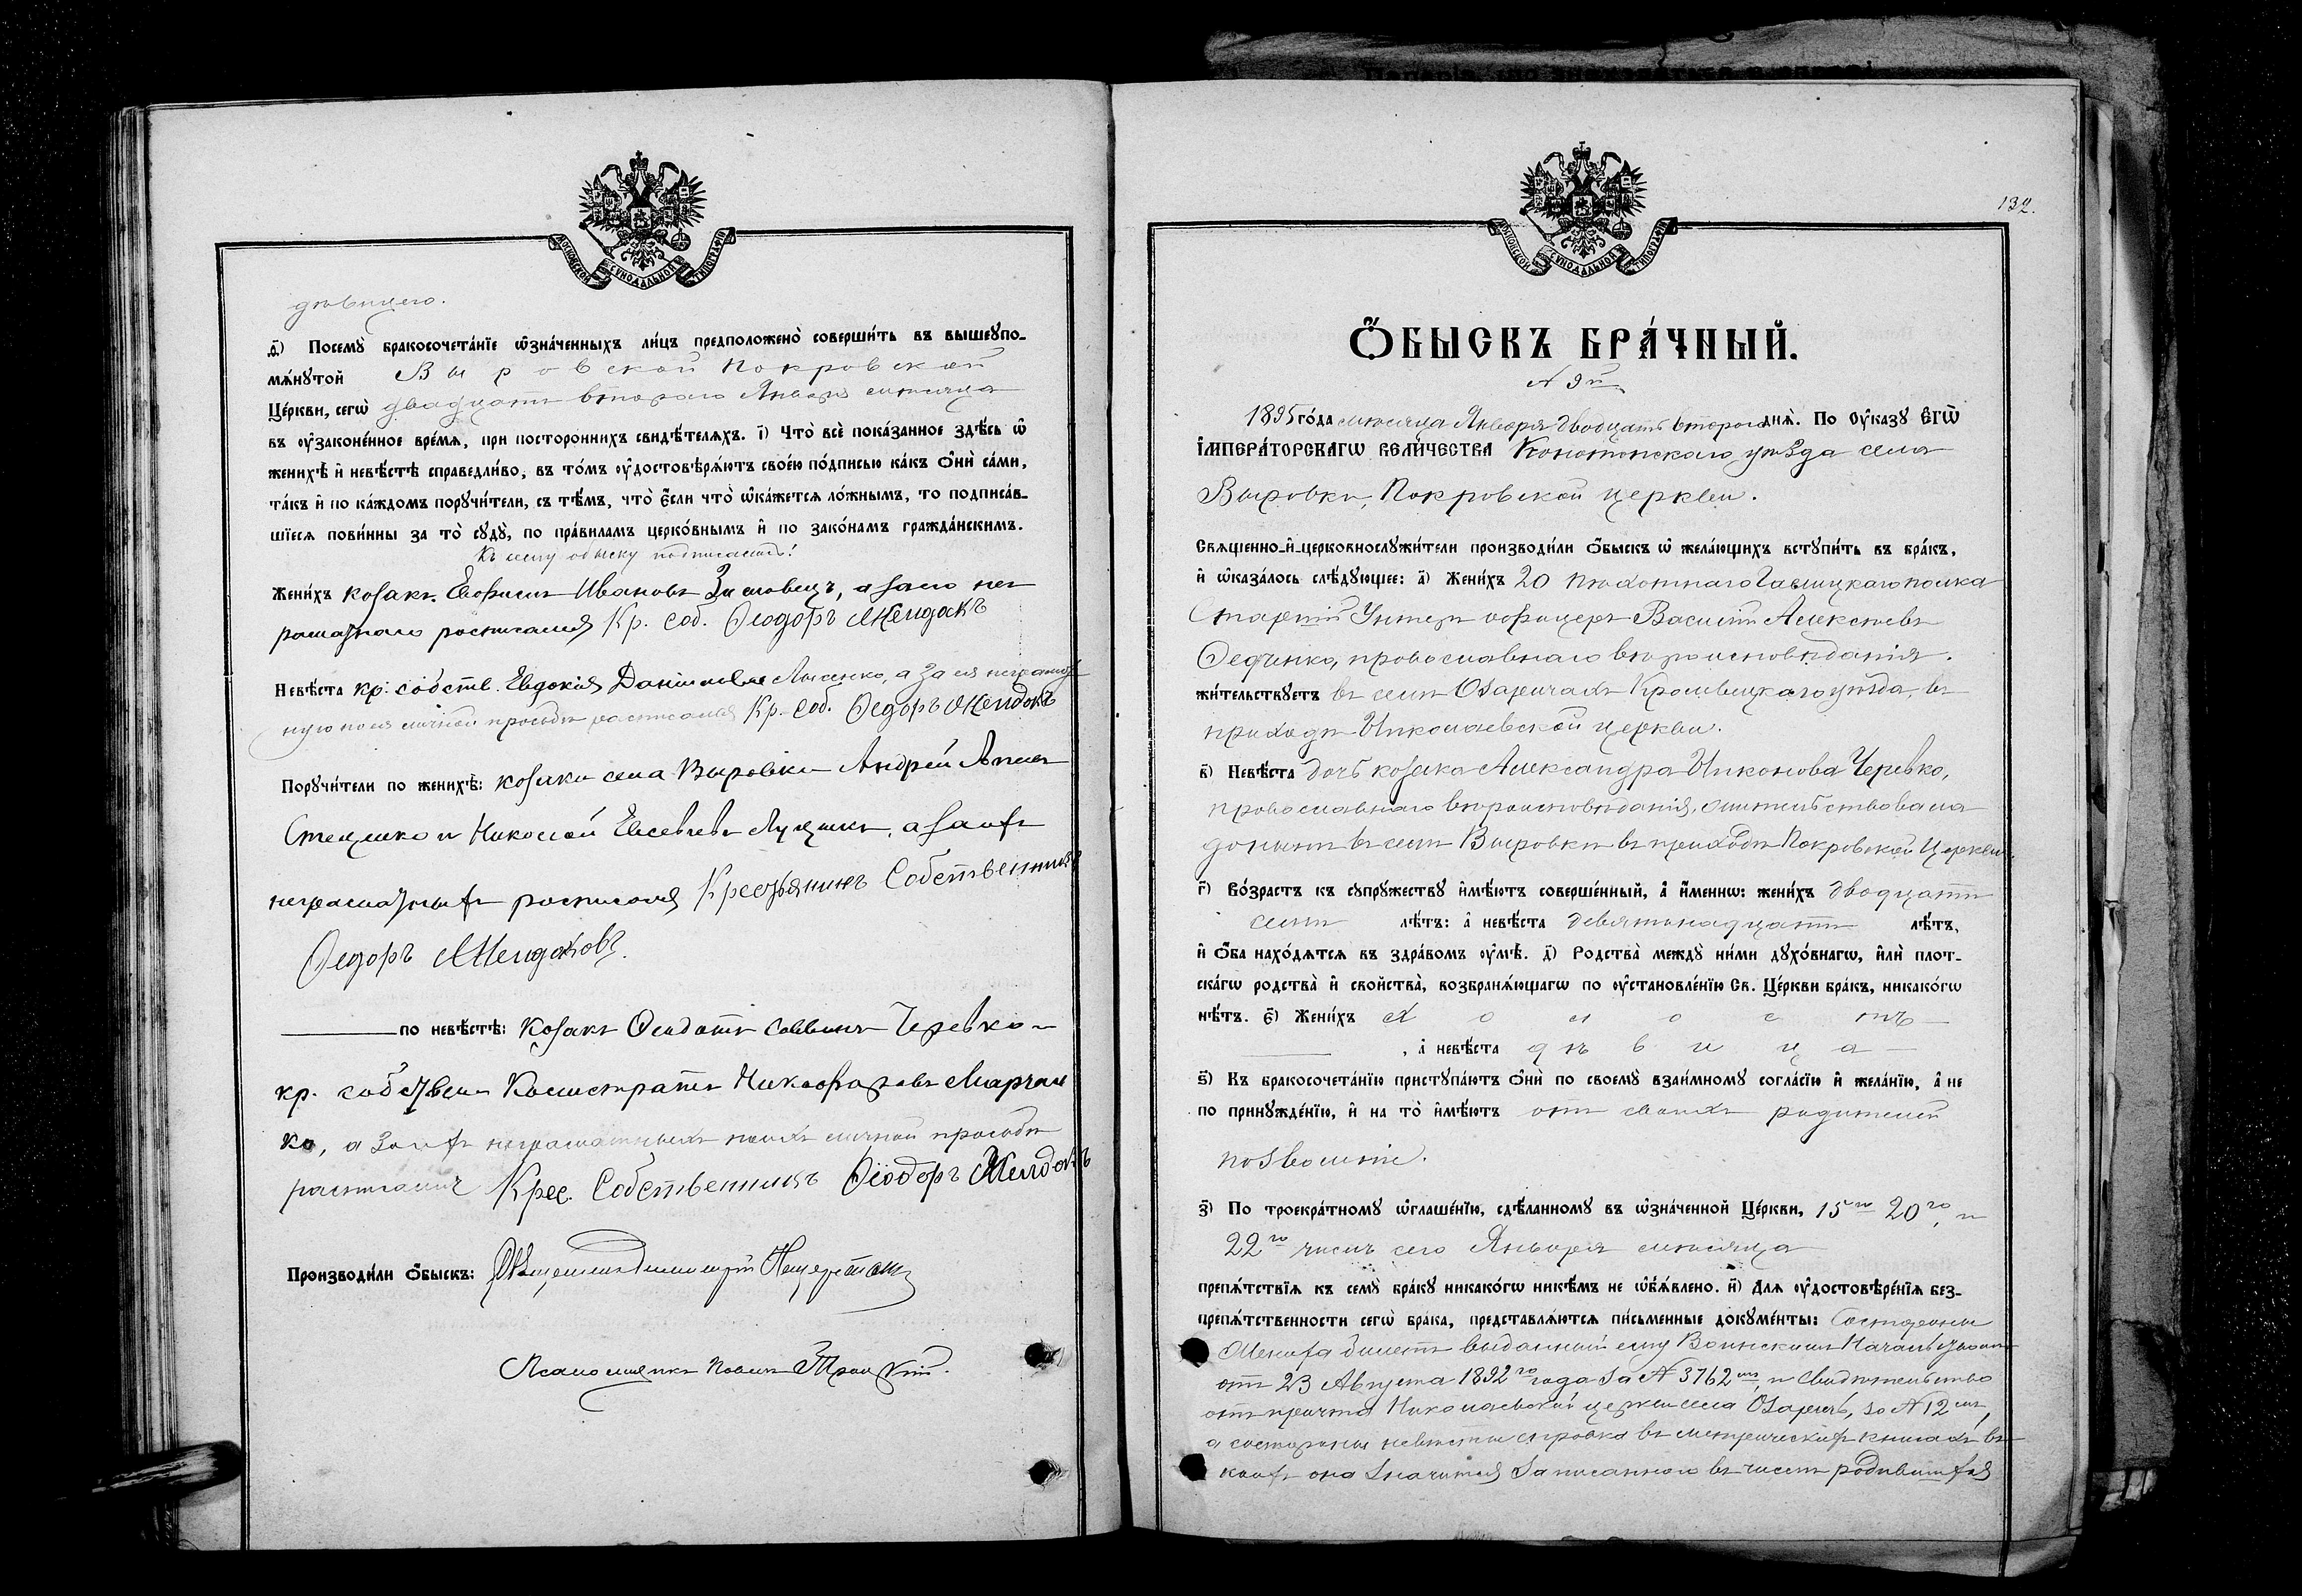 МОСКОВСКОЙ СУНОДАЛЬНОЙ ТИПОГРАФІИ
дѣвицею.
д҃і) Посемꙋ̀ бракосочета́нїе ѡ҆зна́ченныхъ ли́цъ предположено̀ соверши́ть въ вышеꙋпо-
мѧ́нꙋтой Вировской Покровской
Це́ркви, сегѡ̀ двадцать втораго Января мѣсяца
въ ᲂу҆законе́нное вре́мѧ, при посторо́ннихъ свидѣ́телѧхъ. і҃) Что̀ всѐ пока́занное здѣ́сь ѡ҆
женихѣ̀ и҆ невѣ́стѣ справедли́во, въ то́мъ ᲂу҆достовѣрѧ́ютъ свое́ю по́дписью ка́къ ѻ҆нѝ са́ми,
та́къ и҆ по ка́ждомъ порꙋчи́тели, съ тѣ́мъ, что̀ є҆́сли что̀ ѡ҆ка́жетсѧ ло́жнымъ, то подписа́в-
шїесѧ пови́нны за то̀ сꙋдꙋ̀, по пра́виламъ церко́внымъ и҆ по зако́намъ гражда́нскимъ.
Къ сему обыску подписались:
Жени́хъ козакъ Евфимъ Ивановъ а за него нег
рамотнаго росписался Кр. Соб. Ѳеодоръ Желдакъ
Невѣ́ста кр. собств. Евдокія Даніилова Лысенко, а за ея неграмот
ную по ея личной просьбѣ росписался Кр. Соб. Ѳедоръ Желдакъ
Порꙋчи́тели по женихѣ̀: козаки села Вировки Андрей
Стеценко и Николай Евсевіевъ а за нихъ
неграмотныхъ росписался Крестьянинъ Собственникъ
Ѳедоръ Желдаковъ.
по невѣ́стѣ: Козакъ Ѳеодотъ Саввинъ Черевко и
кр. собствен Калистратъ Никифоровъ Марчен
ко, а за нихъ неграмотныхъ по ихъ личной просьбѣ
росписался Крес. Собственникъ Ѳеодоръ Желдакъ
Производи́ли ѻ҆́быскъ: Священникъ Димитрій
Псаломщикъ Павелъ Троицкій.
132.
МОСКОВСКОЙ СУНОДАЛЬНОЙ ТИПОГРАФІИ
Ѻ҆́БЫСКЪ БРА́ЧНЫЙ.
№ 9й
1895 го́да мѣсяца Января двадцать втораго днѧ̀. По ᲂу҆ка́зꙋ Є҆ГѠ̀
І҆МПЕРА́ТОРСКАГѠ ВЕЛИ́ЧЕСТВА Конотопскаго уѣзда села
Вировки, Покровской церкви.
Свѧщенно-и҆-церковнослꙋжи́тели производи́ли ѻ҆́быскъ ѡ҆ жела́ющихъ встꙋпи́ть въ бра́къ,
и҆ ѡ҆каза́лось слѣ́дꙋющее: а҃) Жени́хъ 20 пѣхотнаго Галицкаго полка
Старшій Унтеръ офицеръ Василій Алексѣевъ
Ѳедченко, православнаго вѣроисповѣданія.
жи́тельствꙋетъ въ селѣ Озаричахъ Кролевецкаго уѣзда, въ
приходѣ Николаевской церкви.
в҃) Невѣ́ста дочь козака Александра Никонова Черевко,
православнаго вѣроисповѣданія, жительствовала
донынѣ въ селѣ Вировкѣ въ приходѣ Покровской Церкви.
г҃) Во́зрастъ къ сꙋпрꙋ́жествꙋ и҆мѣ́ютъ соверше́нный, а҆ и҆́меннѡ: жени́хъ двадцати
семи лѣ́тъ: а҆ невѣ́ста девятнадцати лѣ́тъ,
и҆ ѻ҆́ба нахо́дѧтсѧ въ здра́вомъ ᲂу҆мѣ̀. д҃) Родства̀ междꙋ̀ ни́ми дꙋхо́внагѡ, и҆лѝ плот-
ска́гѡ родства̀ и҆ свойства̀, возбранѧ́ющагѡ по ᲂу҆становле́нїю Св. Це́ркви бра́къ, никако́гѡ
нѣ́тъ. є҃) Жени́хъ холостъ
, а҆ невѣ́ста дѣвица
ѕ҃) Къ бракосочета́нїю пристꙋпа́ютъ ѻ҆нѝ по своемꙋ̀ взаи́мномꙋ согла́сїю и҆ жела́нїю, а҆ не
по принꙋжде́нїю, и҆ на то̀ и҆мѣ́ютъ отъ своихъ родителей
позволеніе.
з҃) По троекра́тномꙋ ѡ҆глаше́нїю, сдѣ́ланномꙋ въ ѡ҆зна́ченной Це́ркви, 15го 20го, и
22го числъ сего Января мѣсяца
препѧ́тствїѧ къ семꙋ̀ бра́кꙋ никако́гѡ никѣ́мъ не ѡ҆б̾ѧ́влено. и҃) Длѧ ᲂу҆достовѣре́нїѧ без-
препѧ́тственности сегѡ̀ бра́ка, представлѧ́ютсѧ пи́сьменные докꙋме́нты: Состороны
Жениха билетъ выданный ему Воинскимъ Начальникомъ
отъ 23 Августа 1892го года за № 3762мъ, и свидѣтельство
отъ причта Николаевской церкви села Озаричъ, за № 12мъ,
а состороны невѣсты справка въ метрическихъ книгахъ въ
коихъ она значится записанною въ числѣ родившихся